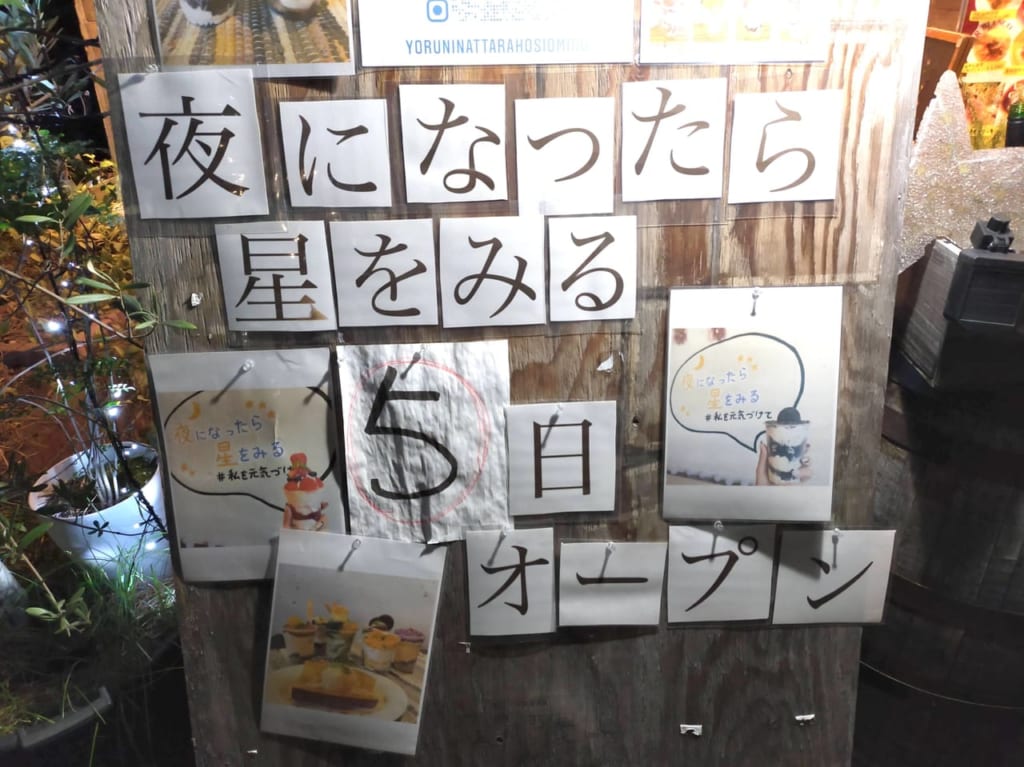 YORUNINATTARAHOSIOMIRU
夜になったら
星をみる
夜になったら
星をみる
#私を元気づけて
5日
夜になったら
星をみる
#私を元気づけ
オープン